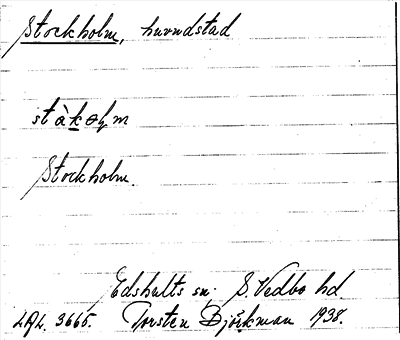 Stockholm, huvudstad
stàkoḷm
Stockholm.
Edshults sn. S. Vedbo hd.
LAL. 3665. Torsten Björkman 1938.